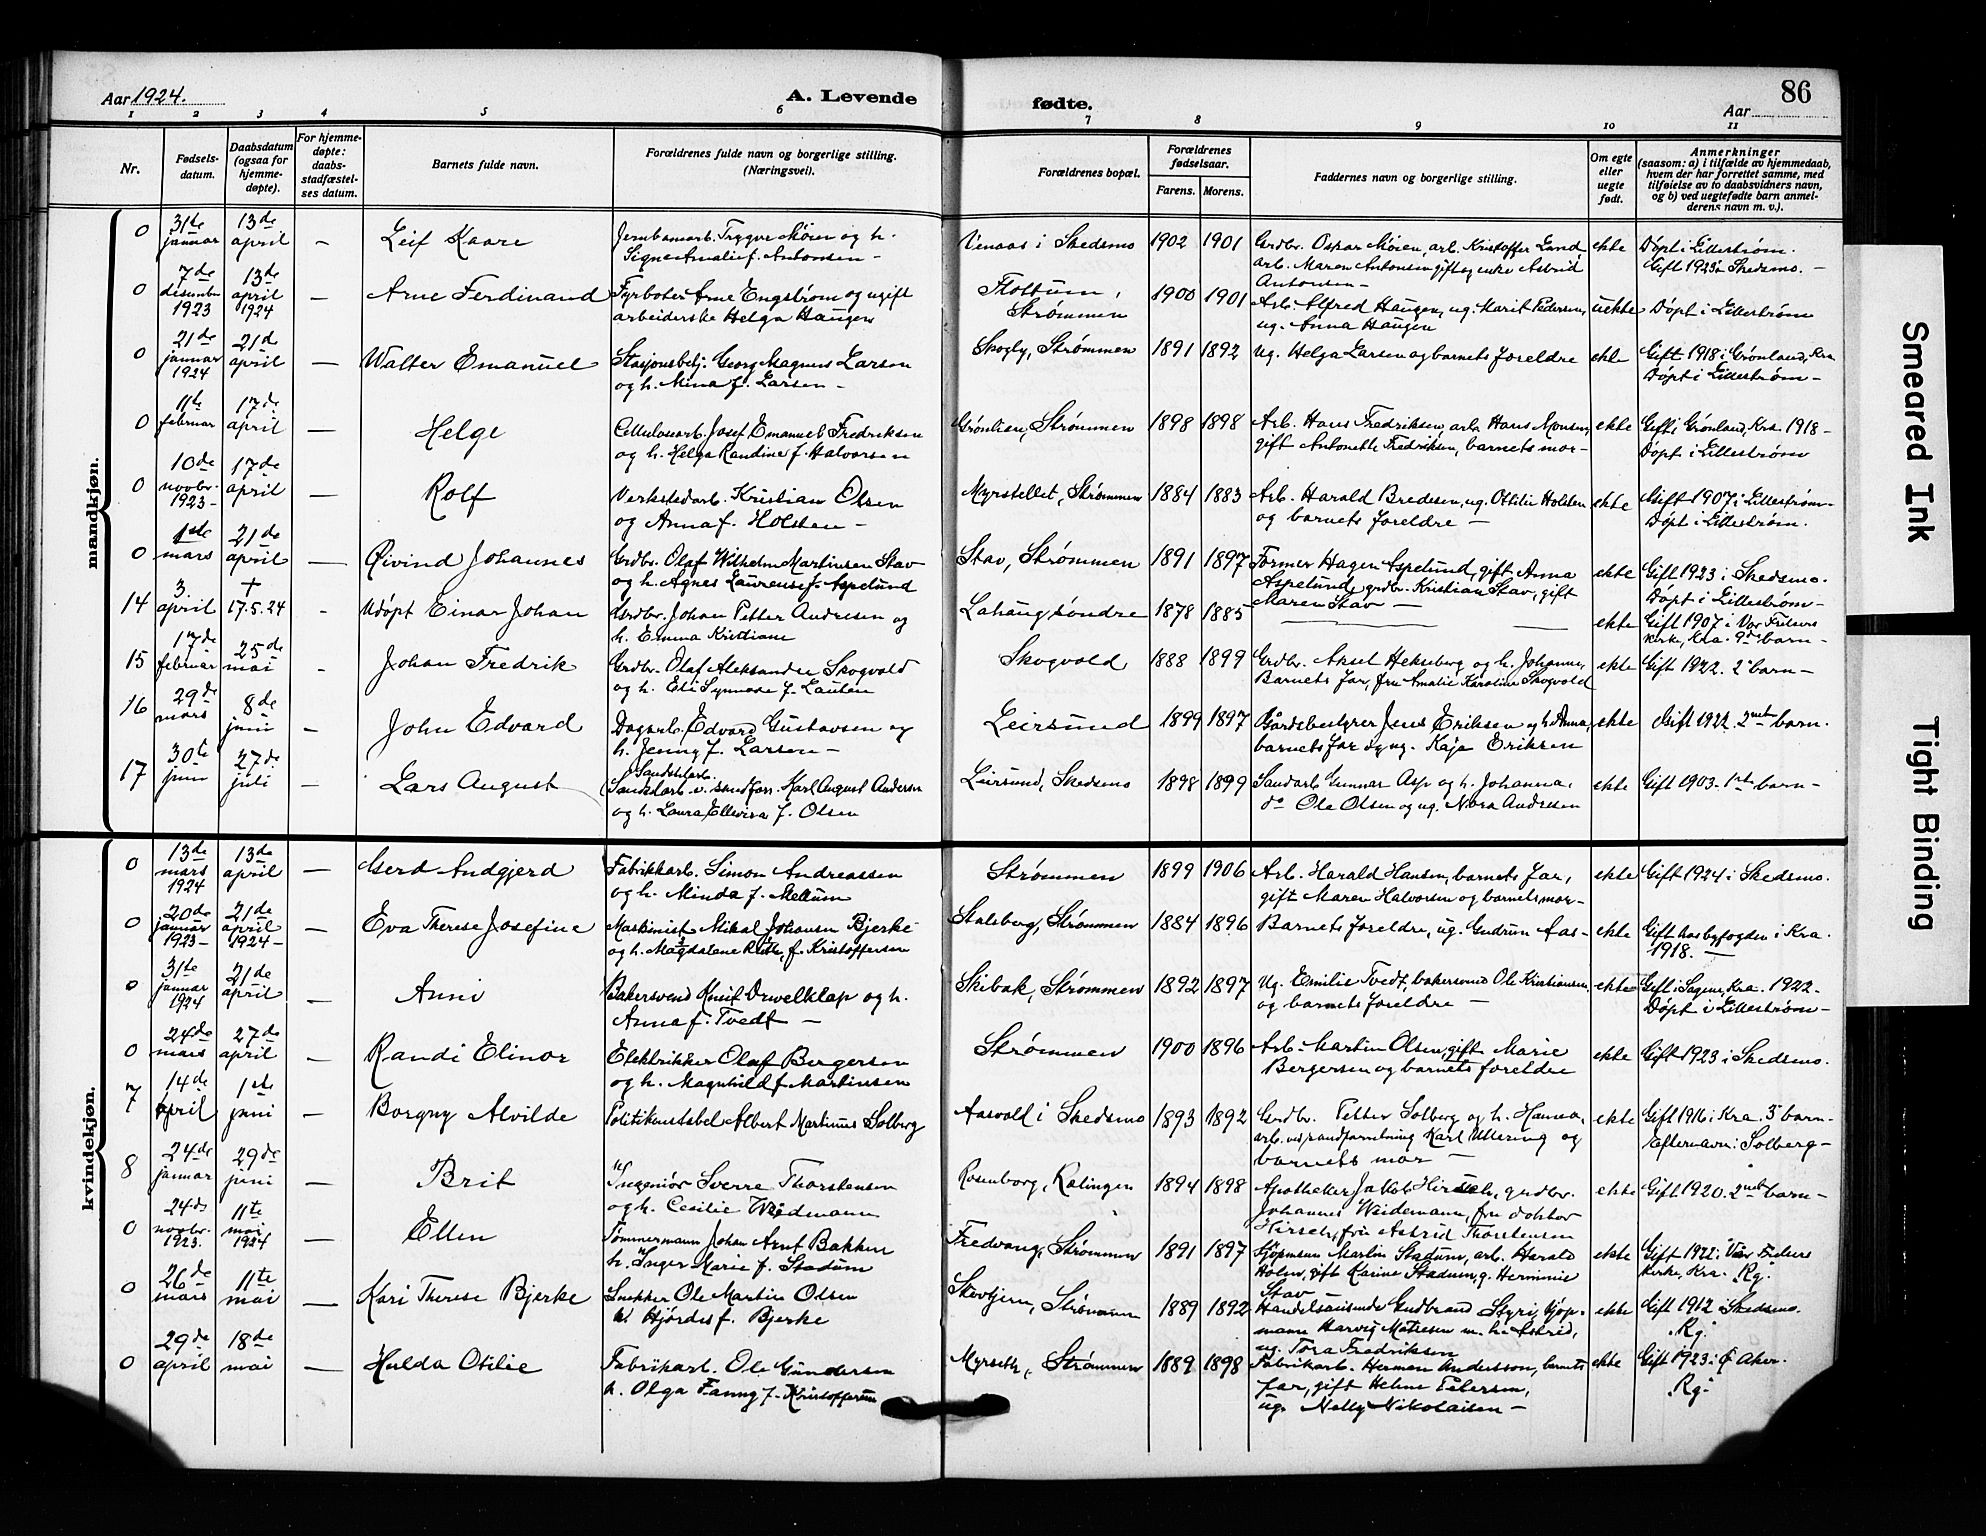 Aar 1924.
A. Levende
fødte.
86
Aar
1 2 3 4 5 6 7 8 9 10 11
Nr.
Fødsels-
datum.
Daabsdatum
(ogsaa for
hjemme-
døpte).
For hjemme-
døpte:
daabs-
stadfæstel-
ses datum.
Barnets fulde navn.
Forældrenes fulde navn og borgerlige stilling.
(Næringsvei).
Forældrenes bopæl.
Forældrenes
fødselsaar.
Farens. Morens.
Faddernes navn og borgerlige stilling.
Om egte
eller
uegte
født.
Anmerkninger
(saasom: a) i tilfælde av hjemmedaab,
hvem der har forrettet samme, med
tilføielse av to daabsvidners navn,
og b) ved uegtefødte barn anmel-
derens navn m. v.).
mandkjøn.
0 31te januar 13de april – Leif Kaare
Jernbanarb. Trygve Moien og h.
Signe Amalie f. Antonsen –
Venaas i Skedsmo 1902 1901
Grdbr. Oskar Moien, arb. Kristoffer Lund
arb. Maren Antonsen gift og enke Astrid
Antonsen –
ekte
Døpt i Lillestrøm.
Gift 1923 i Skedsmo. –
0 7de desember 1923 13de april 1924 – Arne Ferdinand
Fyrbøter Arne Engstrøm og ugift
arbeiderske Helga Haugen
Flottum,
Strømmen
1900 1901
Arb. Alfred Haugen, ug. Marit Pedersen,
ug. Anna Haugen
uekte
Døpt i Lillestrøm
0 21de januar 1924 21de april – Walter Emanuel
Stasjonsbetj. Georg Magnus Larsen
og h. Mina f. Larsen –
Skogly, Strømmen 1891 1892
Ug. Helga Larsen og barnets foreldre
ekte
Gift 1918 i Grønland, Kra
Døpt i Lillestrøm –
0 11te februar 17de april – Helge
Cellulosearb. Josef Emanuel Fredriksen
og h. Helga Randine f. Halvorsen
Grønlien, Strømmen 1898 1898
Arb. Hans Fredriksen, arb. Hans Monsen,
gift Antonette Fredriksen, barnets mor –
ekte
Gift i Grønland, Kra 1918 –
Døpt i Lillestrøm
0 10de novbr. 1923 – 17de april – Rolf
Verkstedarb. Kristian Olsen
og Anna f. Holsten –
Myrstellet, Strømmen 1884 1883
Arb. Harald Bredesen, ug. Ottilie Holsten
og barnets foreldre –
ekte
Gift 1907 i Lillestrøm –
Døpt i Lillestrøm.
0 1ste mars 21de april – Øivind Johannes
Grdbr. Olaf Wilhelm Martinsen Stav
og h. Agnes Laurense f. Aspelund
Stav, Strømmen 1891 1897
Former Hagen Aspelund, gift Anna
Aspelund, grdbr. Kristian Stav, gift
Maren Stav –
ekte
Gift 1923 i Skedsmo.
Døpt i Lillestrøm –
14 3. april † 17.5.24 – Udøpt Einar Johan
Grdbr. Johan Petter Andresen og
h. Emma Kristiane
Lahaug søndre 1878 1885
ekte
Gift 1907 i Vor Frelsers
kirke, Kra. 9de barn –
15 17de februar 25de mai – Johan Fredrik
Grdbr. Olaf Aleksander Skogvold
og h. Eli Synnøve f.
Skogvold 1888 1899
Grdbr. Aksel Hekseberg og h. Johanne,
Barnets far, fru Amalie Karoline Skogvold
ekte
Gift 1922. 2 barn –
16 29de mars 8de juni – John Edvard
Dagarb. Edvard Gustavsen og
h. Jenny f. Larsen –
Leirsund 1899 1897
Gårdsbestyrer Jens Eriksen og h. Anna,
barnets far og ug. Kaja Eriksen
ekte
Gift 1922. 2net barn.
17 30te juni 27de juli – Lars August
Sandarb. v. sandforr. Karl August Andersen
og h. Laura Ellevira f. Olsen
Leirsund, Skedsmo 1898 1899
Sandarb. Gunnar Asp og h. Johanna,
do Ole Olsen og ug. Nora Andresen
ekte
Gift 1903. 1ste barn –
kvindekjøn.
0 13de mars 1924 13de april – Gerd Andgjerd
Fabrikkarb. Simon Andreassen
og h. Minda f. Mellum
Strømmen 1899 1906
Arb. Harald Hansen, barnets far,
gift Maren Halvorsen og barnets mor –
ekte
Gift 1924 i Skedsmo.
0 20de januar 1923 – 21de april 1924 – Eva Therese Josefine
Maskinist Mikal Johansen Bjerke
og h. Magdalene Ruth, f. Kristoffersen
Stalsberg, Strømmen 1884 1896
Barnets foreldre, ug. Gudrun Aas –
ekte
Gift hos byfogden i Kra.
1918. –
0 31te januar 1924 21de april – Anni
Bakersvend Knut Drwelklap og h.
Anna f. Tvedt –
Skibak, Strømmen 1892 1897
Ug. Emilie Tvedt, bakersvend Ole Kristiansen,
og barnets foreldre –
ekte
Gift i Sagene, Kra. 1922 –
Døpt i Lillestrøm –
0 24de mars 27de april – Randi Elinor
Elektriker Olaf Bergersen
og h. Magnhild f. Martinsen
Strømmen 1900 1896
Arb. Martin Olsen, gift Marie
Bergersen og barnets foreldre
ekte
Gift 1923 i Skedsmo.
7 14de april 1ste juni – Borgny Alvilde
Politikonstabel Albert Martinus Solberg
Aasvold i Skedsmo 1893 1892
Grdbr. Petter Solberg og h. Hanna,
arb. ved sandforretning Karl Uttering og
barnets mor –
ekte
Gift 1916 i Kra. 3 barn –
Efternavn: Solberg –
8 24de januar 29de juni – Brit
Ingeniør Sverre Thorstensen
og h. Cecilie Widmann
Rosenborg, Rælingen 1894 1898
Apotheker Jakob Hirsch, grdbr.
Johannes Weidemann, fru doktor
Hirsch, fru Astrid Thorstensen
ekte
Gift 1920. 2net barn –
0 24de novbr. 1923. 11te mai 1924 – Ellen
Tømmermann Johan Arnt Bakken
h. Inger Marie f. Stadum
Fredvang, Strømmen 1891 1897
Kjøpmann Martin Stadum, arb. Harald
Holm, gift Karine Stadum, g. Herminie
Stav –
ekte
Gift 1922 i Vor Frelsers
kirke, Kra. "Rg."
0 26de mars 11te mai – Kari Therese Bjerke
Snekker Ole Martin Olsen
h. Hjørdis f. Bjerke
Skovhjem, Strømmen 1889 1892
Handelsreisende Gudbrand Styri, kjøp-
mann Harvig Matiesen m. h. Astrid,
ug. Tora Fredriksen
ekte
Gift 1912 i Skedsmo.
"Rg."
0 29de april 18de mai – Hulda Otilie
Fabrikarb. Ole Gundersen
h. Olga Fanny f. Kristoffersen
Myrseth, Strømmen 1889 1898
Fabrikarb. Herman Andersson, barnets
far, gift Helene Petersen,
ug. Nelly Nikolaisen –
ekte
Gift 1923 i Ø. Aker.
"Rg."
Smeared Ink
Tight Binding